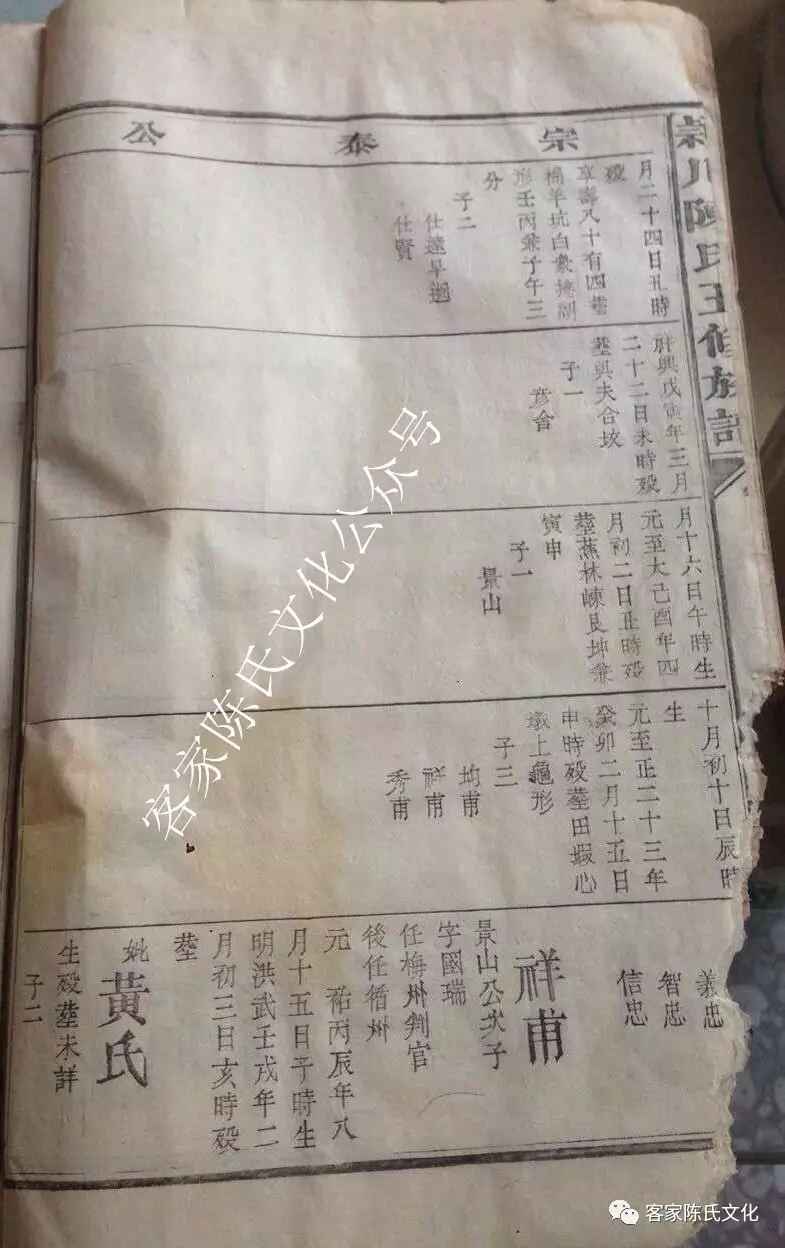 宗泰公
川陳氏五修族譜
月二十四日丑時
歿
享壽八十有四塟
楊羊坑白象捲湖
形壬丙兼子午三
分
子二
仕遠早逝
仕賢
肝與戊寅年三月
二十二日未時歿
塟與夫合坟
子一
彦舍
月十六日午時生
元至大己酉年四
月初二日丑時歿
塟蕉林崠艮坤兼
寅申
子一
景山
十月初十日辰時
生
元至正二十三年
癸卯二月十五日
申時歿塟田塅心
墩上龜形
子三
均甫
祥甫
秀甫
義忠
智忠
信忠
祥甫
景山公次子
字國瑞
任梅州判官
後任循州
元祐丙辰年八
月十五日子時生
明洪武壬戌年二
月初三日亥時歿
塟
妣黃氏
生歿塟未詳
子二
客家陈氏文化公众号
客家陈氏文化